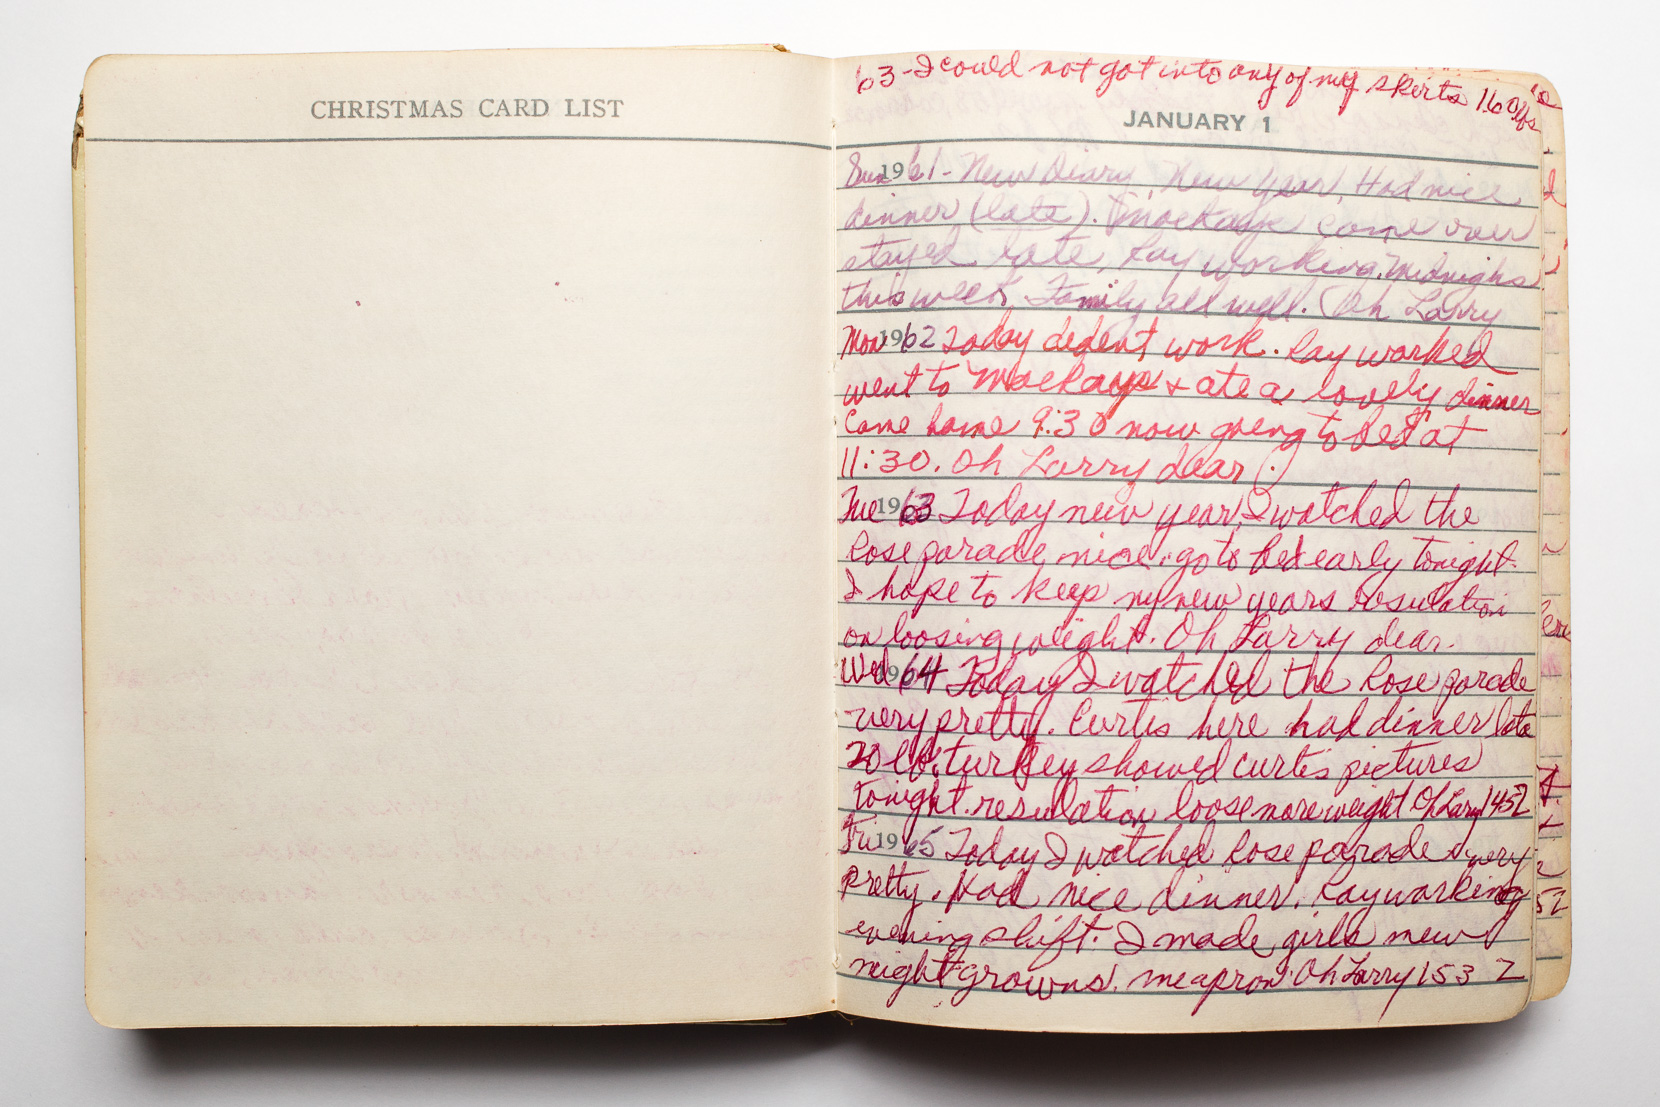 CHRISTMAS CARD LIST
63 - I could not got into any of my skirts 160 lbs
JANUARY 1
Sun 1961 - New Diary, New Year, Had nice
dinner (late). Mockays came over
stayed late, Ray working Midnighs
this week, Family all well. Oh Larry
Mon 1962 Today dident work. Ray worked
went to Mockays + ate a lovely dinner
Came home 9:30 now going to bed at
11:30. Oh Larry dear.
Tue 1963 Today new year, I watched the
Rose parade, nice. go to bed early tonight.
I hope to keep my new years resulation
on loosing weight. Oh Larry dear.
Wed 1964 Today I watched the Rose parade
very pretty. Curtis here had dinner late
20 lb. turkey showed curtis pictures
tonight. resulation loose more weight Oh Larry 145Z
Fri 1965 Today I watched Rose parade very
pretty. Had nice dinner. Ray working
evening shift. I made girls new
night growns. me apron. Oh Larry 153 Z